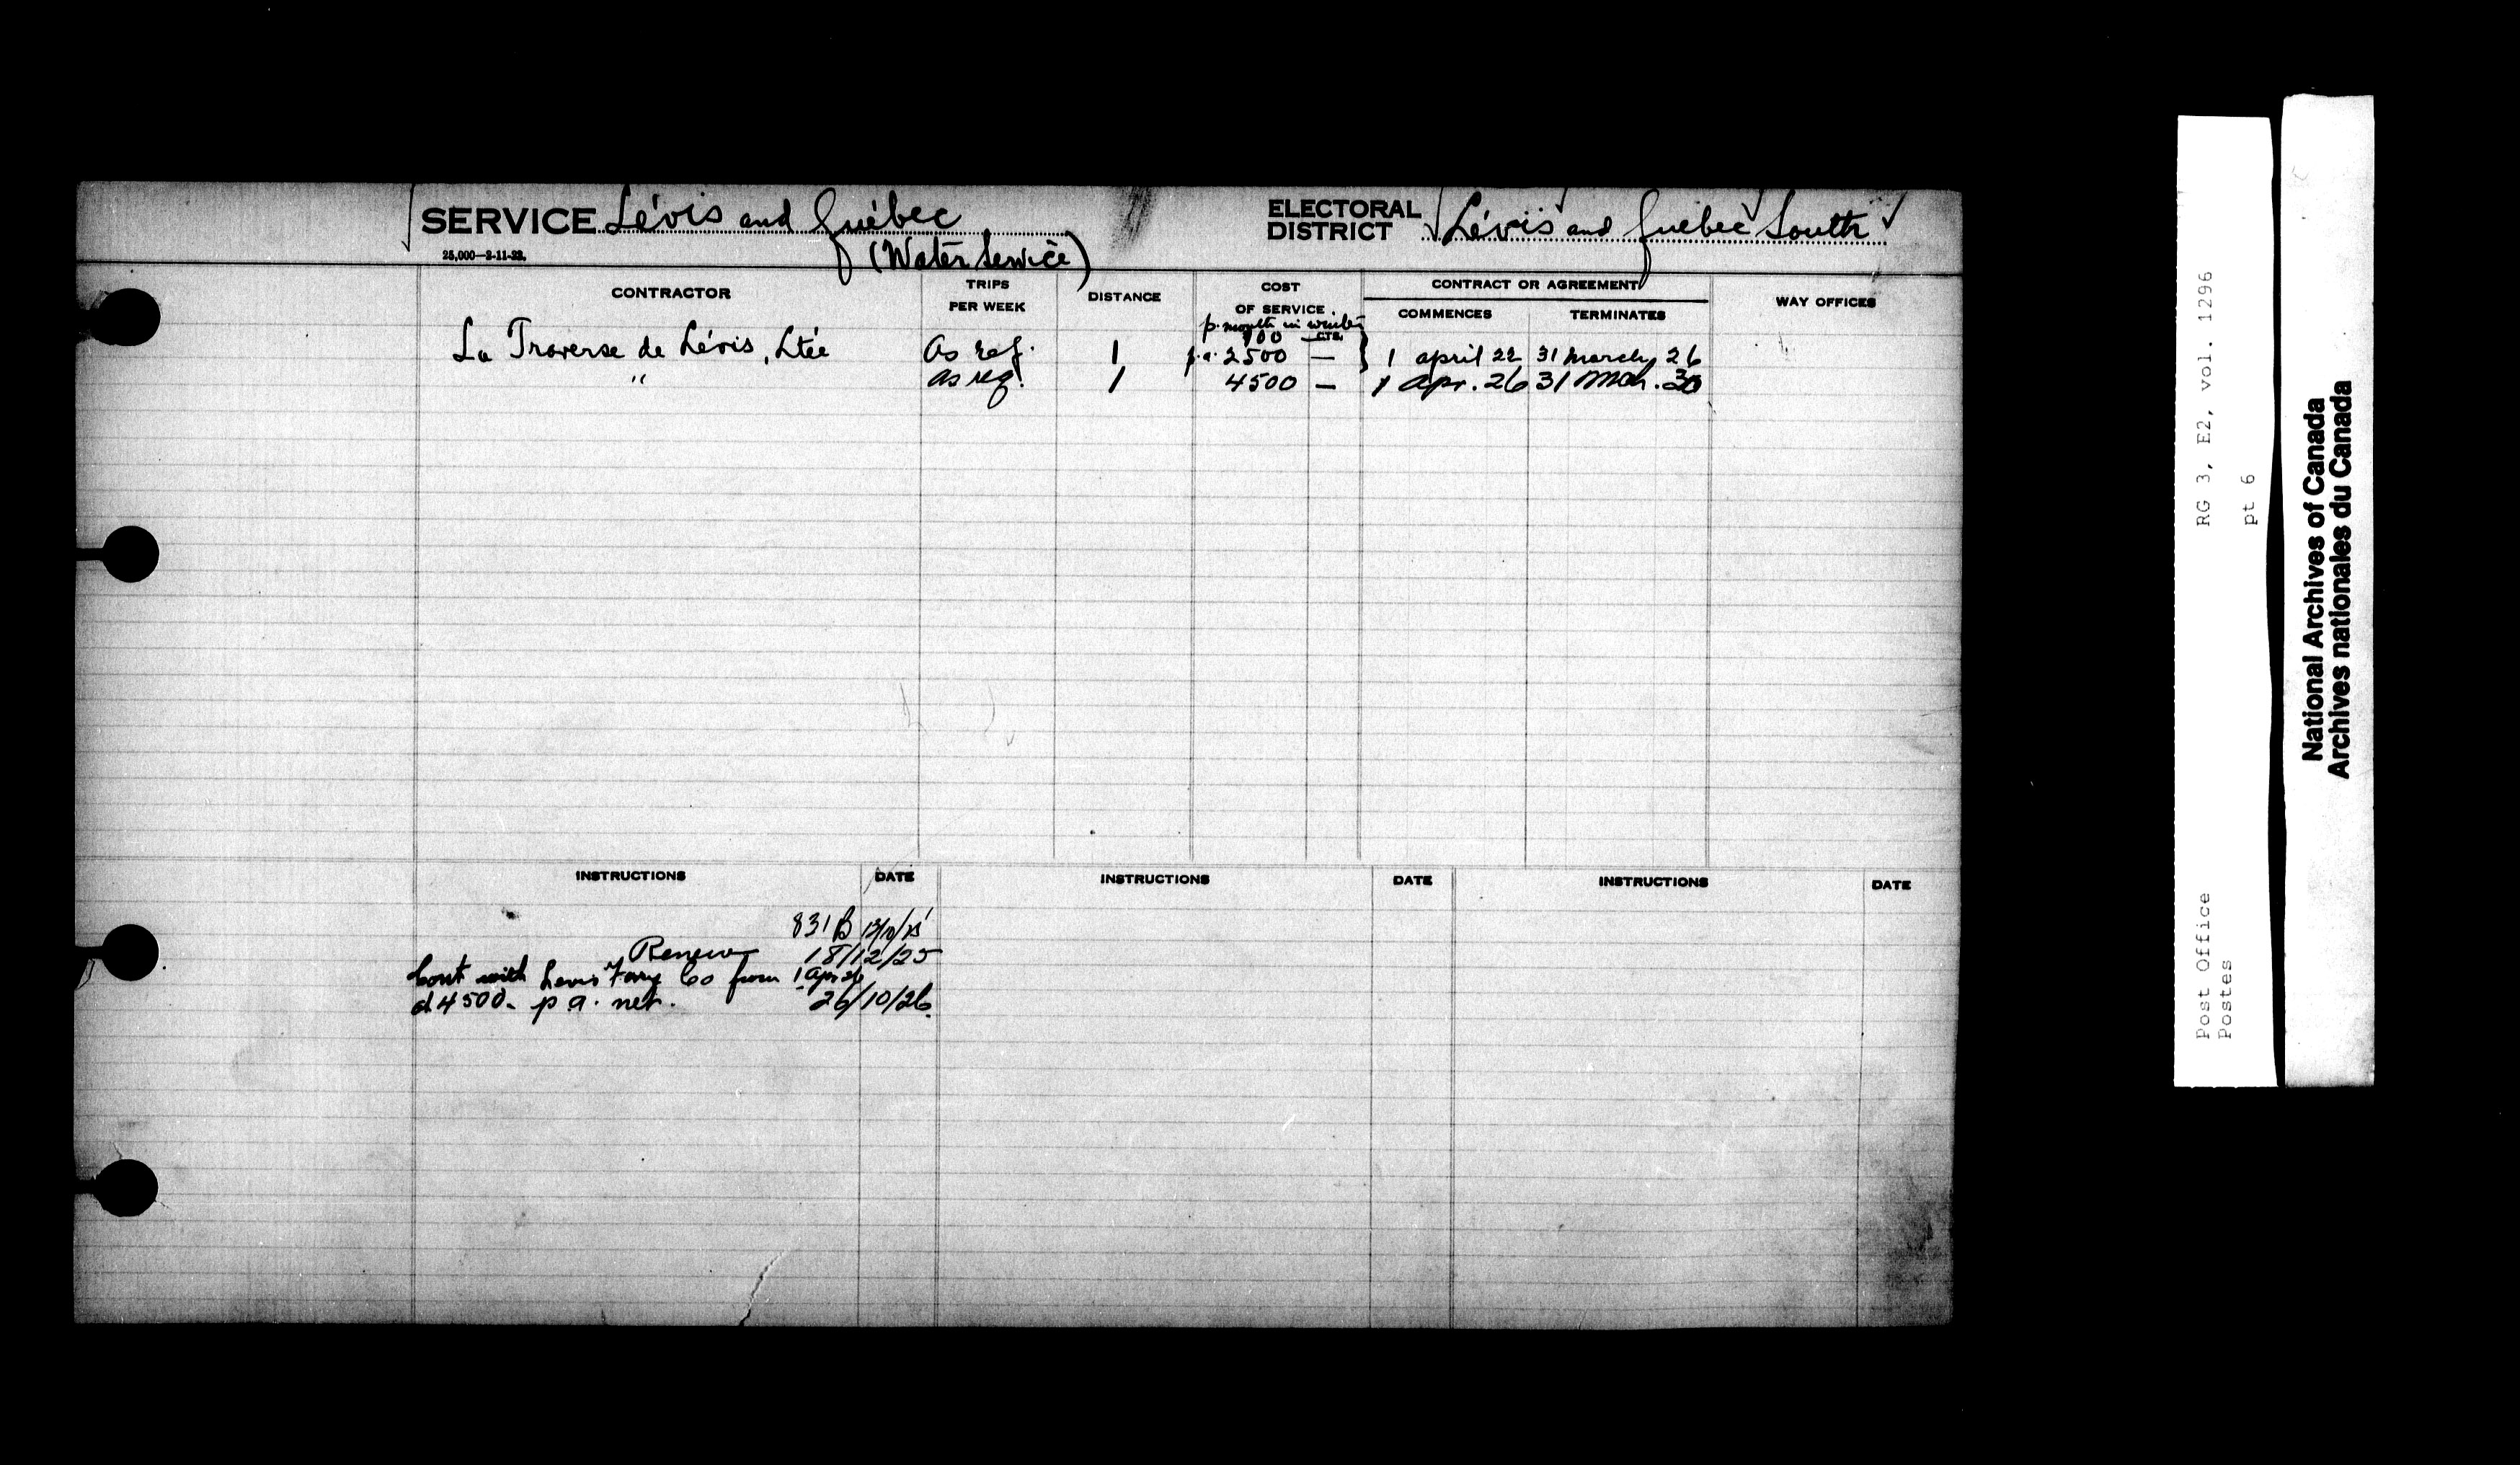 SERVICE Lévis and Québec
(Water Service)
25,000—2-11-22.
ELECTORAL DISTRICT Lévis and Quebec South
CONTRACTOR
TRIPS PER WEEK
DISTANCE
COST OF SERVICE
CONTRACT OR AGREEMENT
COMMENCES
TERMINATES
WAY OFFICES
p. month in winter
100 — CTS.
La Traverse de Lévis, Ltée As req. 1 p.a. 2500 — 1 april 22 31 March 26
" as req. 1 4500 — 1 Apr. 26 31 Mch. 30
INSTRUCTIONS DATE INSTRUCTIONS DATE INSTRUCTIONS DATE
831 B
Renew 18/12/25
Cont with Levis Ferry Co from 1 Apr 26
4500 - p a. net. 26/10/26
RG 3, E2, vol. 1296
pt 6
Post Office
Postes
National Archives of Canada
Archives nationales du Canada